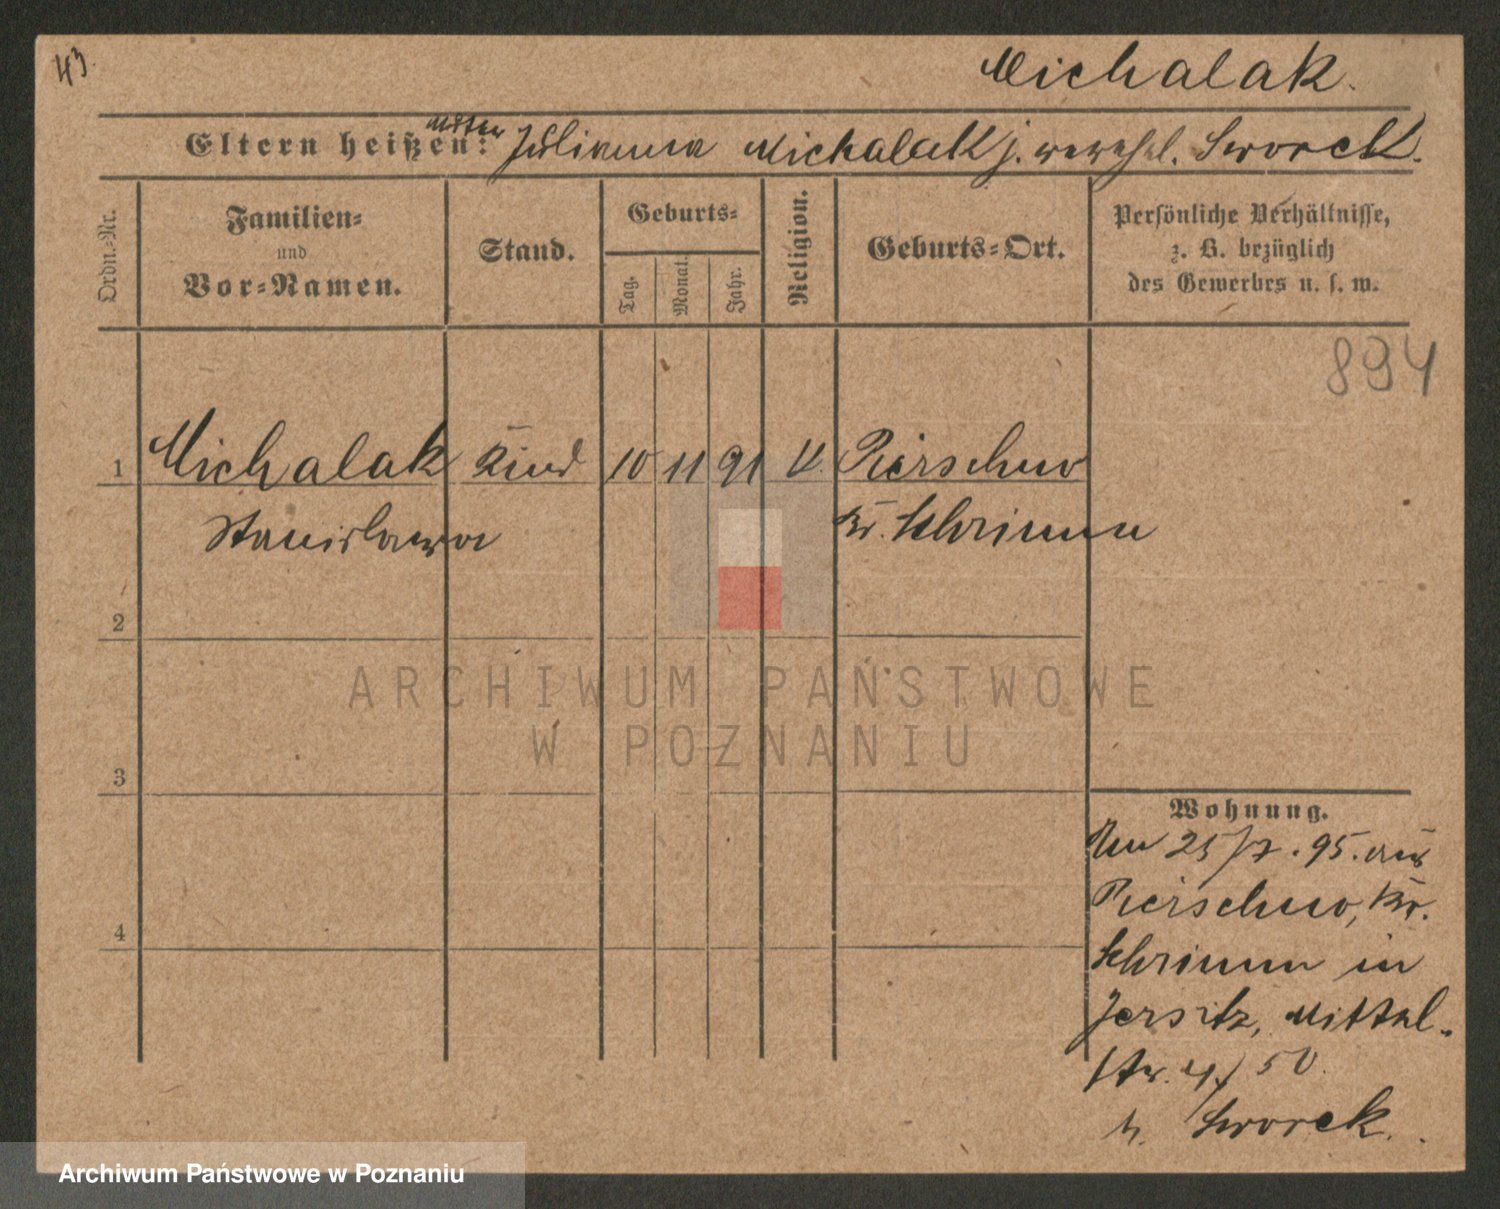 43.
Michalak.
Eltern heißen: Mutter Julianna Michalak j. verehel. Sworek.
Ordn.-Nr.
Familien-
und
Vor-Namen.
Stand.
Geburts-
Tag.
Monat.
Jahr.
Religion.
Geburts-Ort.
Persönliche Verhältnisse,
z. B. bezüglich
des Gewerbes u. s. w.
894
1 Michalak Kind 10 11 91 Pierschno
Stanislawa Kr. Schrimm
2
ARCHIWUM PAŃSTWOWE
W POZNANIU
3
Wohnung.
25/7. 95. aus
Pierschno, Kr.
4
Schrimm in
Jersitz, Mittel-
str. 4/50
b. Sworek.
Archiwum Państwowe w Poznaniu